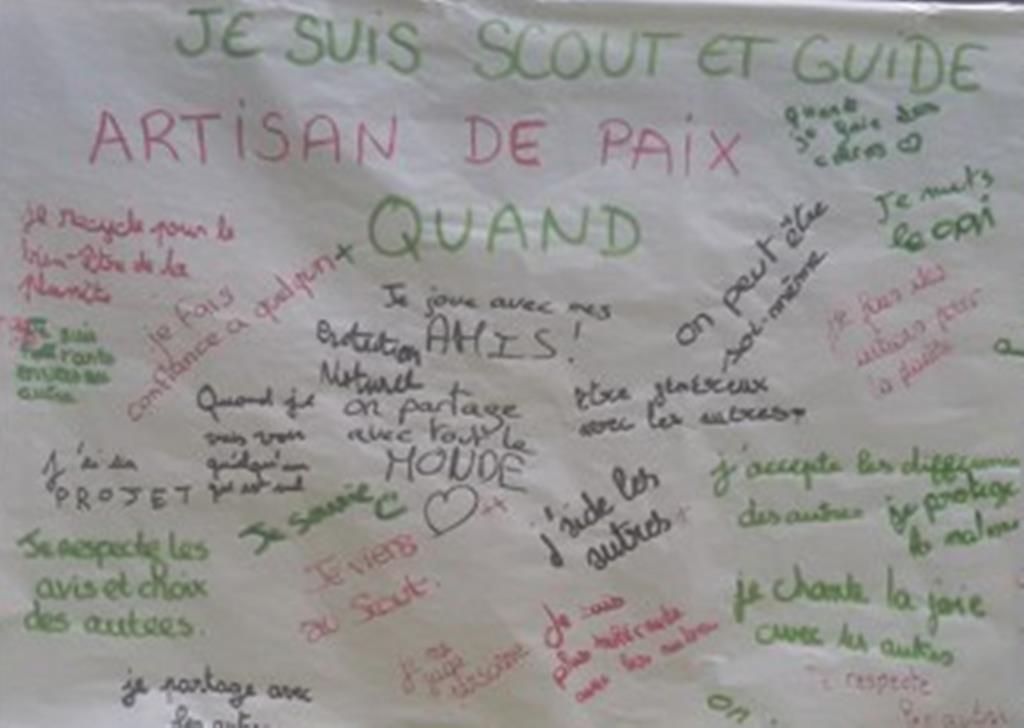 JE SUIS SCOUT ET GUIDE
ARTISAN DE PAIX
QUAND
quand
je fais des
calins
Je mets
le
je recycle pour le
bien-être de la
planète
je fais
confiance a quelqu'un
Je joue avec mes
AMIS!
Protection
Naturel
on peut être
soi-même
je fais des
la
Je suis
autres
Quand je
vais voir
quelqu'un
qui est seul
on partage
avec tout le
MONDE
être généreux
avec les autres
J'ai un
PROJET
Je souris
j'aide les
autres
j'accepte les différences
des autres
je protège
la nature
Je respecte les
avis et choix
des autres.
Je viens
au Scout.
je ne
juge
personne
Je suis
plus tolérante
avec les autres
je chante la joie
avec les autres
Je respecte
je partage avec
les autres
on